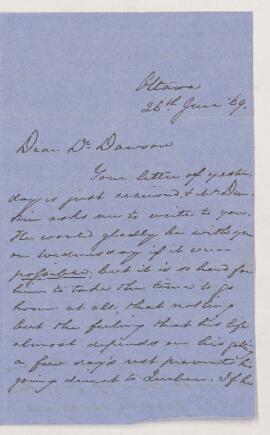 Ottawa
26th June '69.
Dear Dr. Dawson
Your letter of yester-
day is just received, & Mr. Dun-
kin asks me to write to you.
He would gladly be with you
on Wednesday if it were
possible; but it is so hard for
him to take the time to go
home at all, that nothing
but the feeling that his life
almost depends on his getting
a few day's rest prevents his
going direct to Quebec. If he